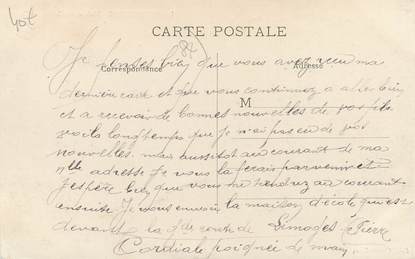 Lot
CARTE POSTALE
Correspondance
Adresse
M
Je penses bien que vous avez reçu ma
dernière carte et que vous continuez a aller bien
et a recevoir de bonnes nouvelles de vos fils
voila longtemps que je n'ai pas eu de vos
nouvelles. mais aussitot au courant de ma
nlle adresse je vous la ferais parvenir et
j'espère bien que vous me tiendrez au courant
ensuite. Je vous envoie la maison d'école qui est
devant la gde route de Limoges à
Cordiale poignée de main